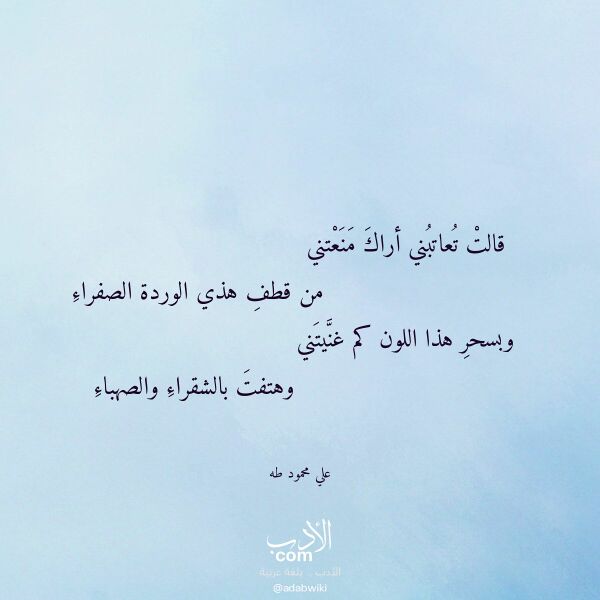 قالتْ تُعاتبُني أراكَ مَنَعْتني
من قطفِ هذي الوردة الصفراءِ
وبسحرِ هذا اللون كم غنَّيتَني
وهتفتَ بالشقراءِ والصهباءِ
علي محمود طه
الأدب
com
الأدب .. بلغة عربية
@adabwiki